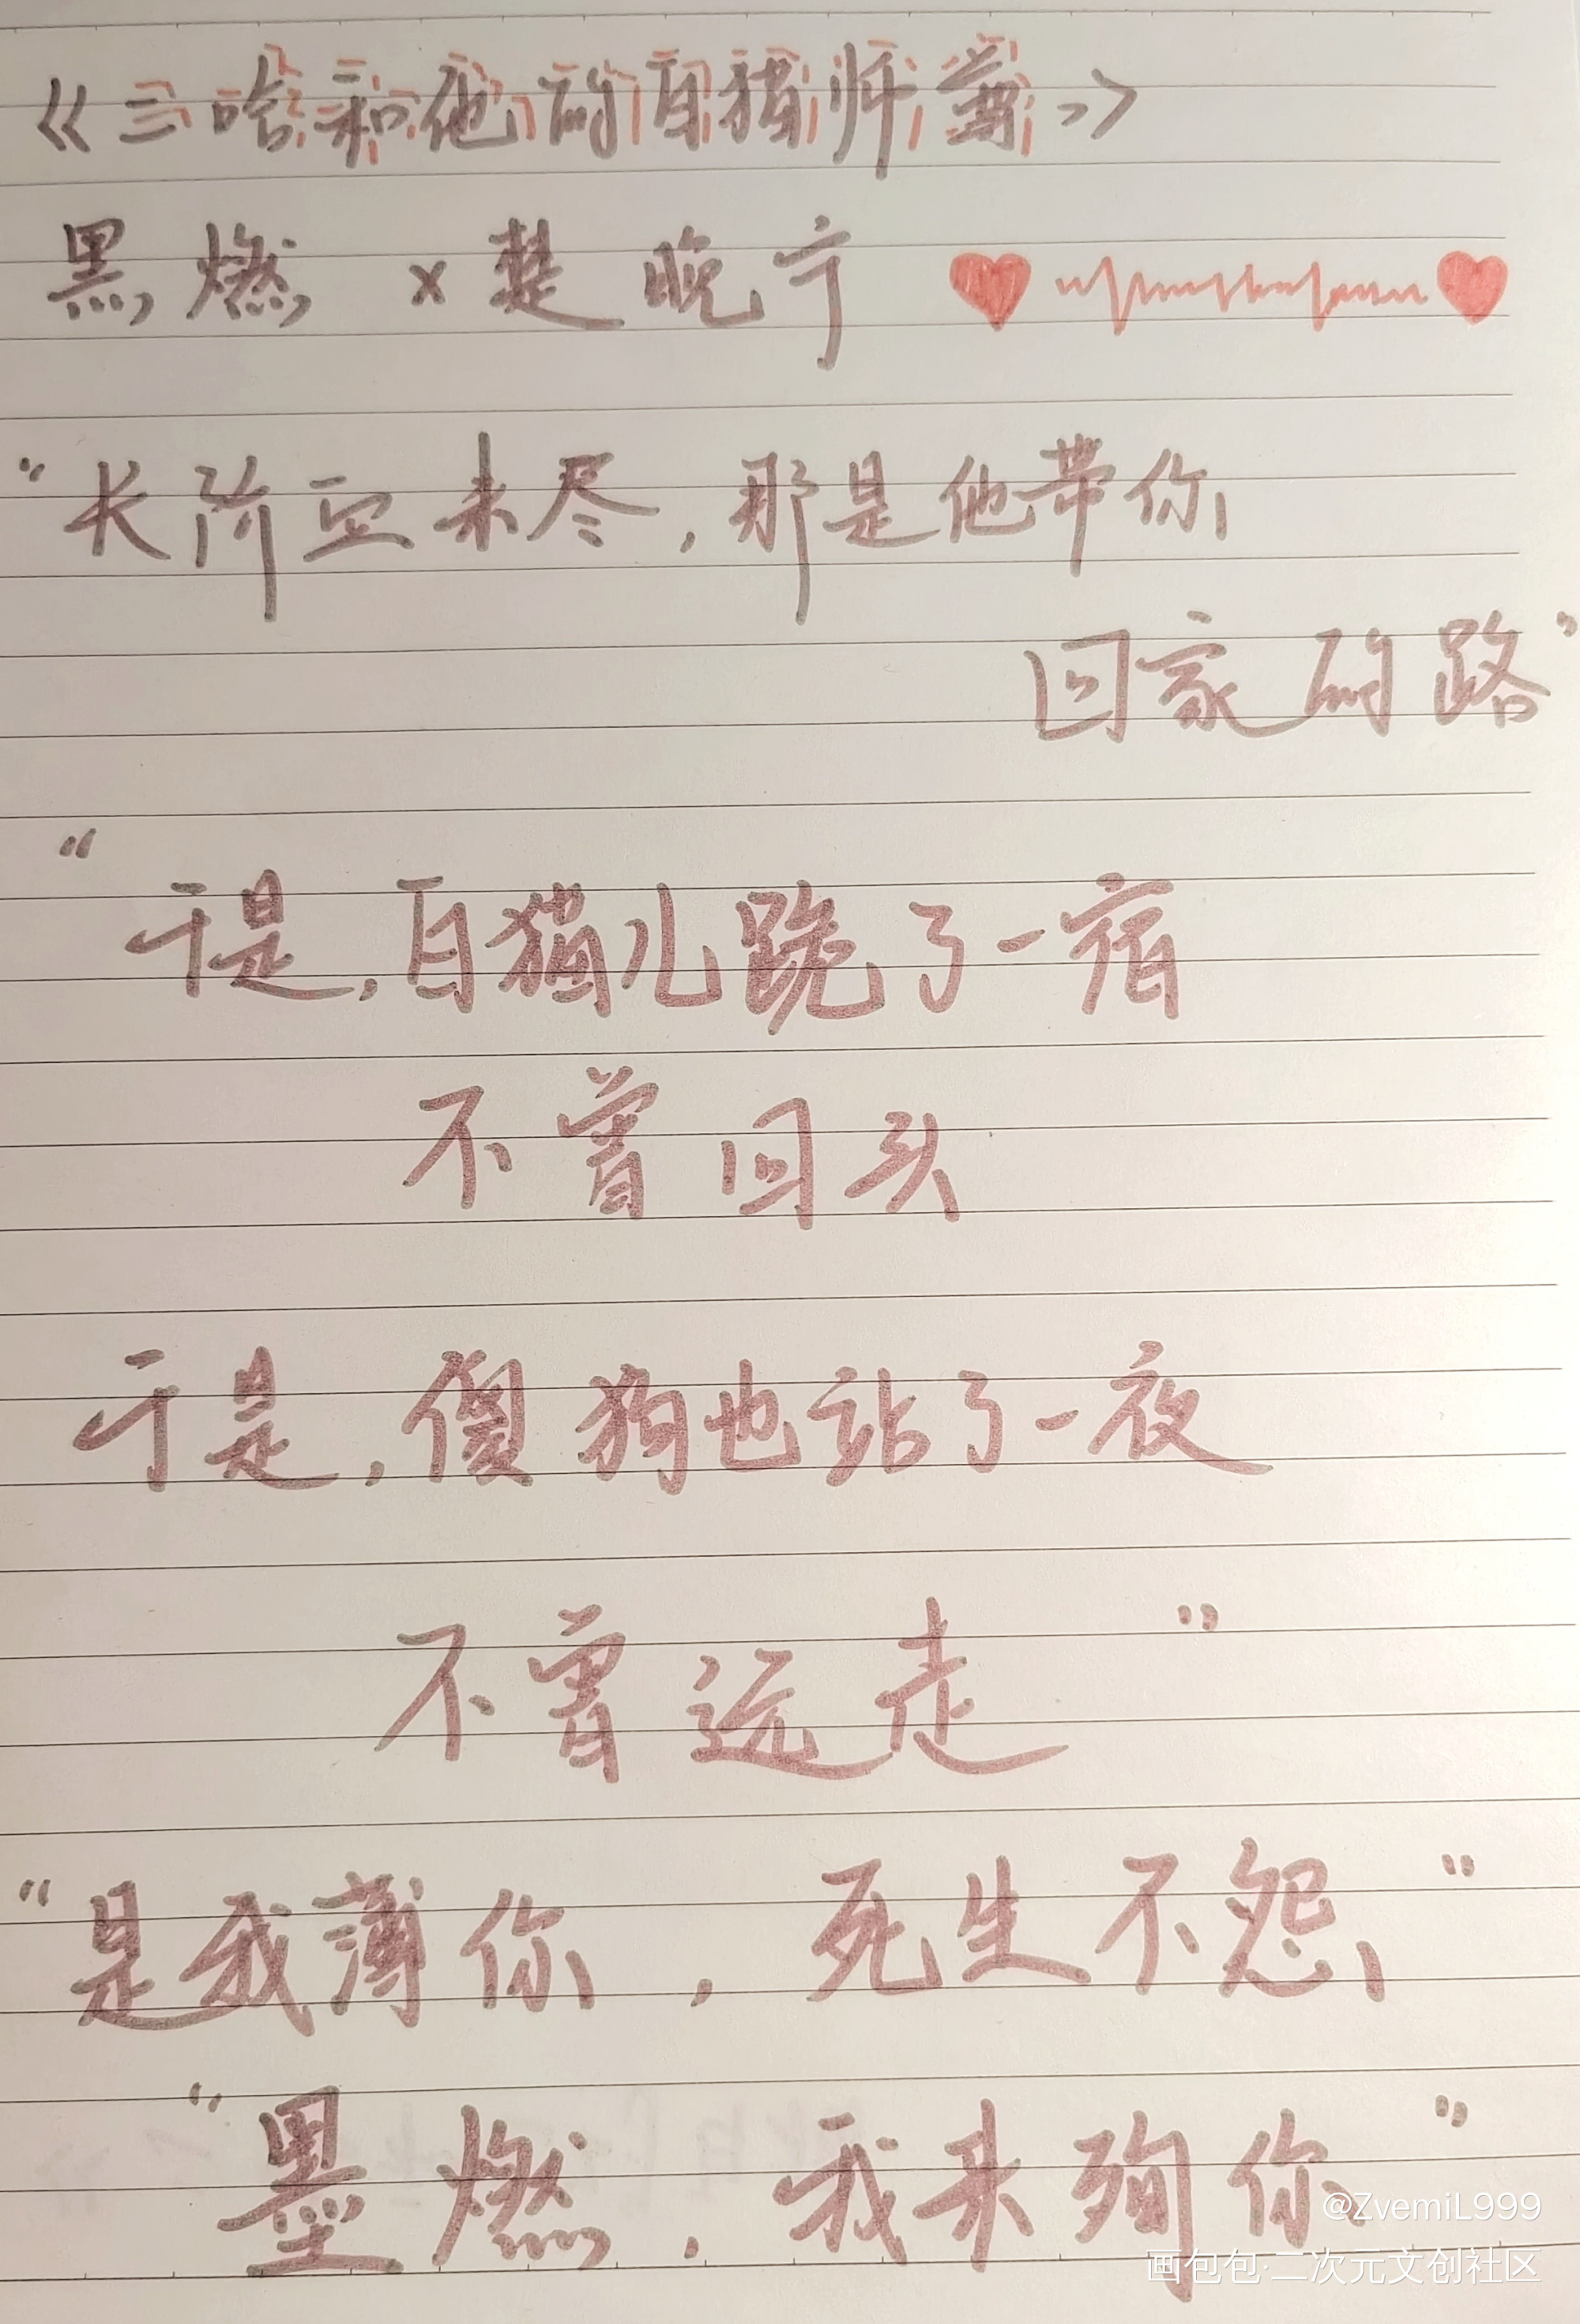 《二哈和他的白猫师尊》
黑燃 x 楚晚宁
“长阶血未尽，那是他带你
回家的路”
“
于是，白猫儿跪了一宿
不曾回头
于是，傻狗也站了一夜
不曾远走”
“是我薄你，死生不怨”
“墨燃，我来殉你”
@ZvemiL999
画包包·二次元文创社区